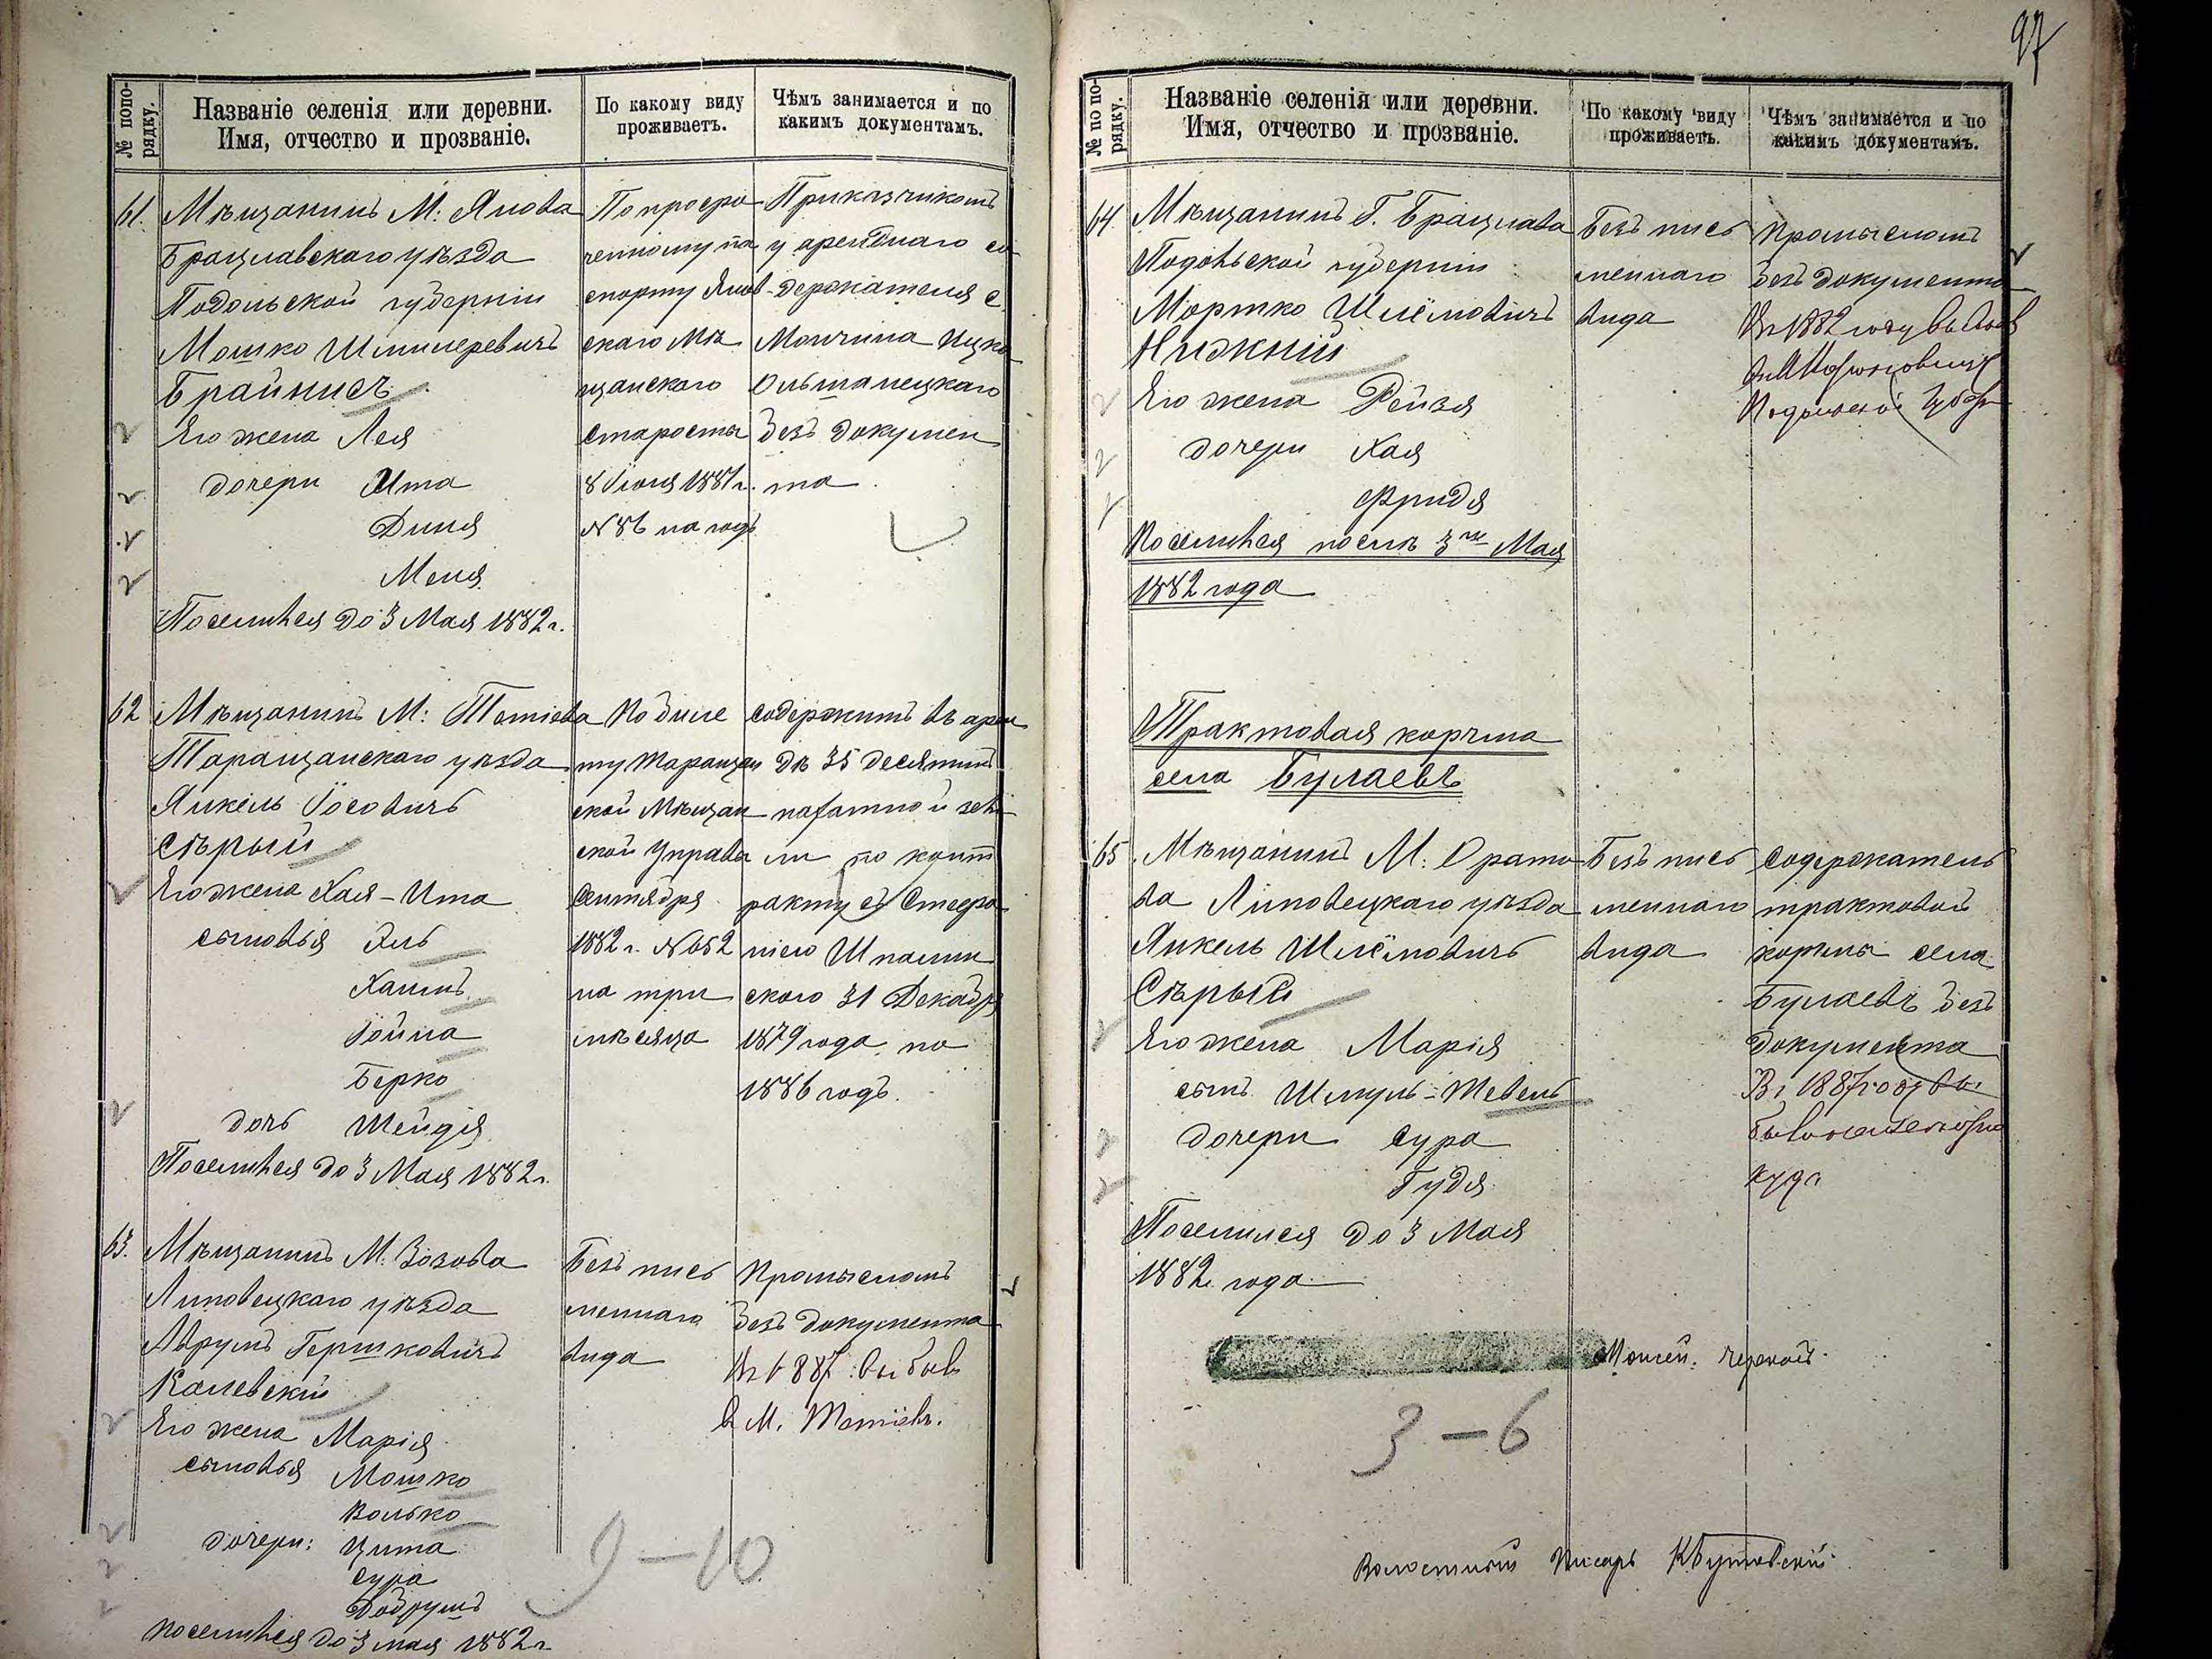 № попо-
рядку.
Названіе селенія или деревни.
Имя, отчество и прозваніе.
По какому виду
проживаетъ.
Чѣмъ занимается и по
какимъ документамъ.
61.
Мѣщанинъ М: Янова
Брацлавскаго уѣзда
Подольской губерніи
Мошко Шмилеревичъ
Брайнисъ
Его жена Лея
дочери Ита
Диня
Меня
Поселився до 3 Мая 1882 г.
По просро
ченному па
спорту Янов
скаго мѣ
щанскаго
старосты
8 Іюля 1881 г.
№ 86 на годъ
Прикащикомъ
у аренднаго со-
держателя с.
Мончина Ицка
Ольшанецкаго
безъ докумен
та
62
Мѣщанинъ М: Тетіева
Таращанскаго уѣзда
Янкель Іосовичъ
Сѣрый
Его жена Хая-Ита
сыновья Эль
Хаимъ
Іойна
Берко
дочь Шейдя
Поселився до 3 Мая 1882 г.
По биле
ту Таращан
ской Мѣщан
ской Управы
Сентября
1882 г. № 652
на три
мѣсяца
Содержитъ въ арен
дѣ 35 десятинъ
пахатной зем
ли по конт
ракту съ Стефа
ніею Шпалин
скаго 31 Декабря
1879 года по
1886 годъ.
63.
Мѣщанинъ М. Зозова
Липовецкаго уѣзда
Аврумъ Гершковичъ
Калевскій
Его жена Марія
сыновья Мошко
Волько
дочери: Цита
Сура
Добрушъ
Поселився до 3 мая 1882 г.
Безъ пись
меннаго
вида
Промысломъ
безъ документа
Въ 1887 выбыв
в М. Тетіевъ.
9-10
97
№ по по-
рядку.
Названіе селенія или деревни.
Имя, отчество и прозваніе.
По какому виду
проживаетъ.
Чѣмъ занимается и по
какимъ документамъ.
64.
Мѣщанинъ Г. Брацлава
Подольской губерніи
Мортко Шлёмовичъ
Нижній
Его жена Рейзя
дочери Хая
Фридя
Поселився послѣ 3го Мая
1882 года
Безъ пись
меннаго
вида
Промысломъ
безъ документа
Въ 1882 году выбыв
Подольской Губер
Трактовая корчма
села Булаевъ
65.
Мѣщанинъ М: Орато
ва Липовецкаго уѣзда
Янкель Шлёмовичъ
Сѣрый
Его жена Марія
сынъ Шмуль-Тевель
дочери Сура
Гудя
Поселился до 3 Мая
1882 года
Безъ пись
меннаго
вида
Содержатель
трактовой
корчмы села
Булаевъ безъ
документа
Въ 1887 году вы
былъ неизвестно
куда
3-6
Волостной Писарь